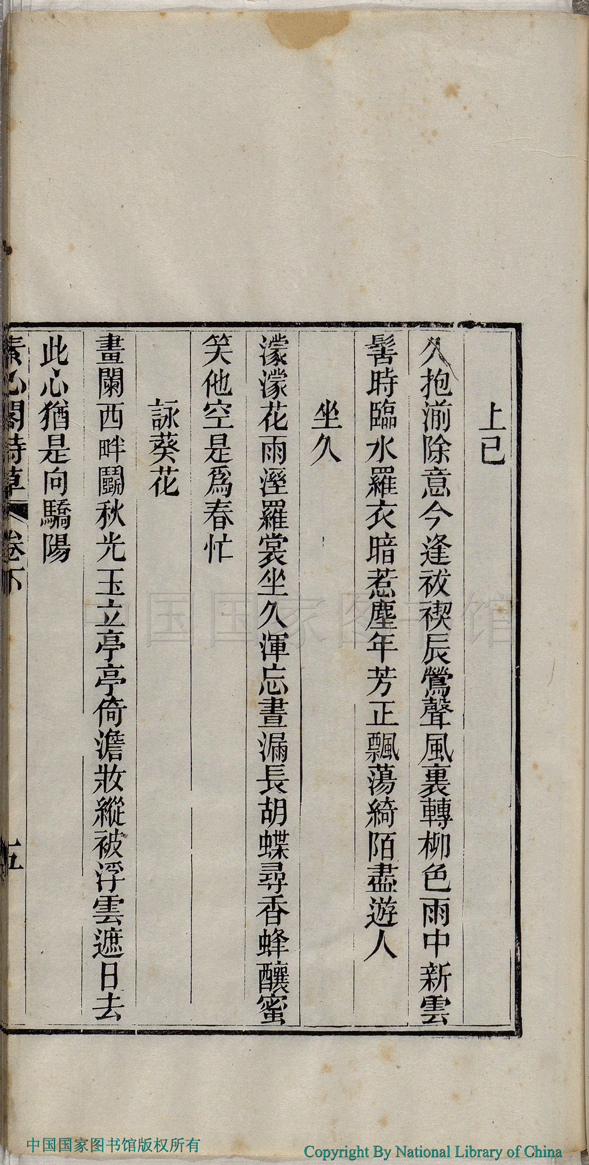 上巳
久抱湔除意今逢祓禊辰鶯聲風裏轉柳色雨中新雲
髻時臨水羅衣暗惹塵年芳正飄蕩綺陌盡遊人
坐久
濛濛花雨溼羅裳坐久渾忘晝漏長胡蝶尋香蜂釀蜜
笑他空是爲春忙
詠葵花
畫闌西畔鬬秋光玉立亭亭倚澹妝縱被浮雲遮日去
此心猶是向驕陽
素心閣詩草 卷下 五
中国国家图书馆
中国国家图书馆版权所有
Copyright By National Library of China